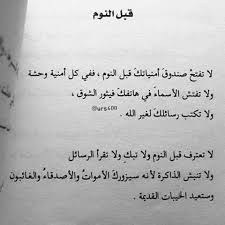 قبل النوم
لا تفتحْ صندوقَ أمنياتكَ قبل النوم ، ففي كل أمنية وحشة
ولا تفتش الأسماءَ في هاتفكَ فيثور الشوق ،
ولا تكتب رسائلكَ لغير الله .
@urs400
لا تعترف قبل النوم ولا تبك ولا تقرأ الرسائل
ولا تنبش الذاكرة لأنه سيزوركَ الأمواتُ والأصدقاءُ والغائبون
وستعيد الخيبات القديمة .